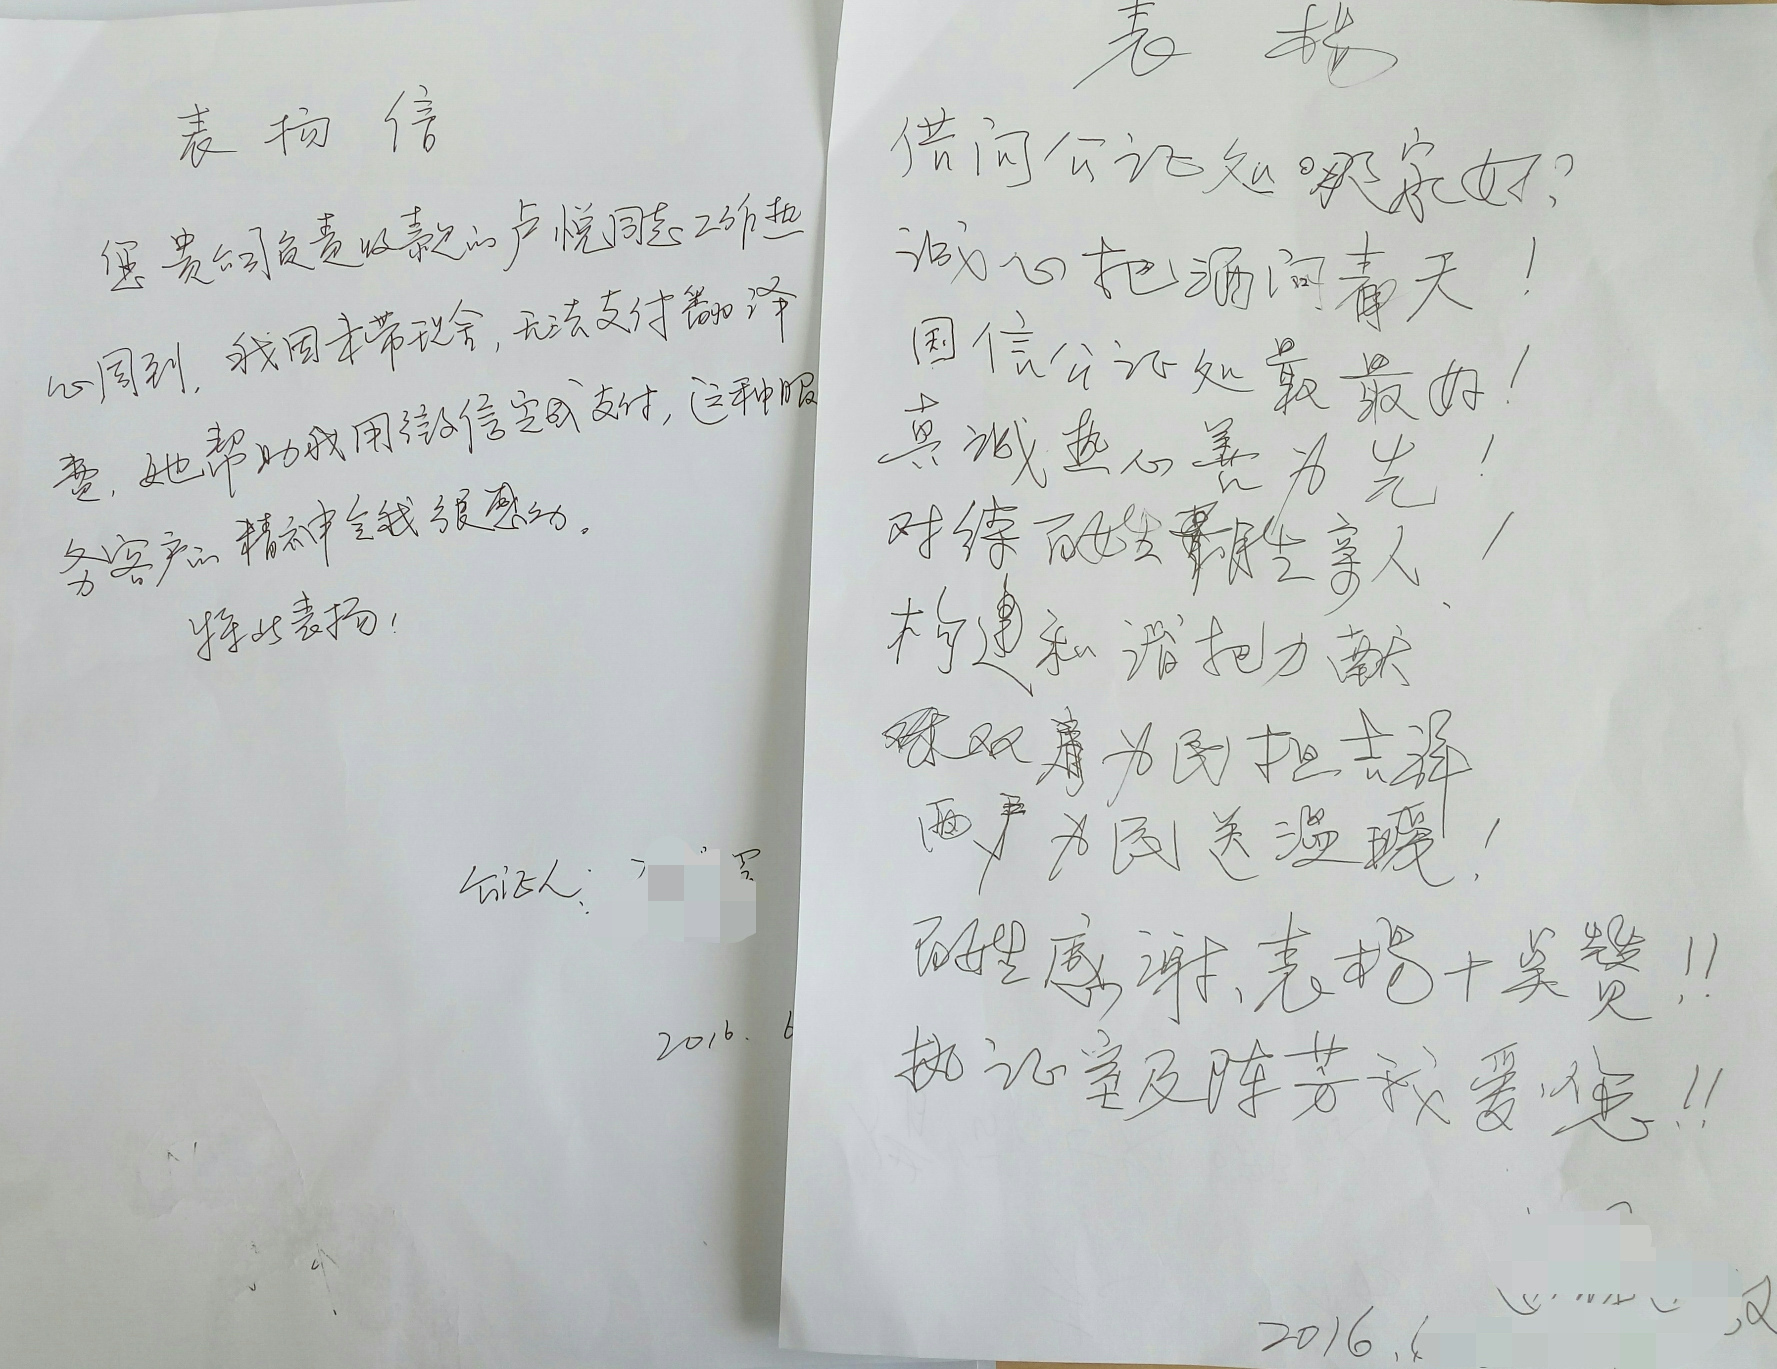 表扬信
贵公司负责收款的卢悦同志工作热
心周到，我因未带现金，无法支付翻译
费，她帮助我用微信完成支付，这种服
务客户的精神令我很感动。
特此表扬！
公证人：
2016. 6
表扬
借问公证处哪家好？
诚心把酒问青天！
国信公证处最最好！
真诚热心善为先！
对待百姓 亲人！
构建和谐把力献
双肩为民担吉祥
两 为民送温暖！
百姓感谢、表杨十奖赞！！
执证室及陈芳我爱您！！
2016.